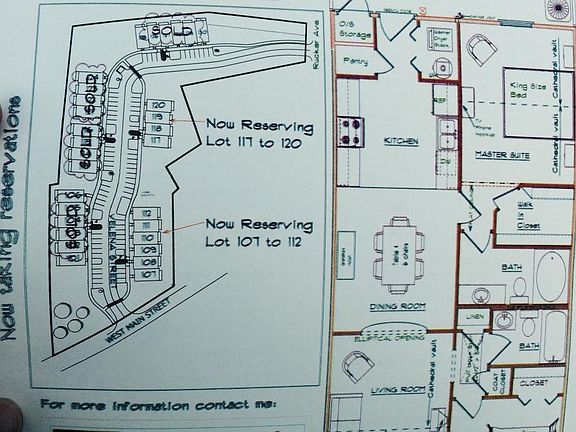 Now taking reservations
SOLD
Rucker Ave
SOLD
SOLD
120
119
118
117
Now Reserving
Lot 117 to 120
SOLD
112
111
110
109
108
107
Now Reserving
Lot 107 to 112
WEST MAIN STREET
For more information contact me:
O/S
Storage
Pantry
Washer
Dryer
REF.
KITCHEN
King Size
Bed
Cathedral vault
Cathedral vault
MASTER SUITE
Walk
in
Closet
BATH
Table &
6 chairs
DINING ROOM
ELLIPTICAL OPENING
LINEN
BATH
LIVING ROOM
Cathedral vault
COAT
CLOSET
CLOSET